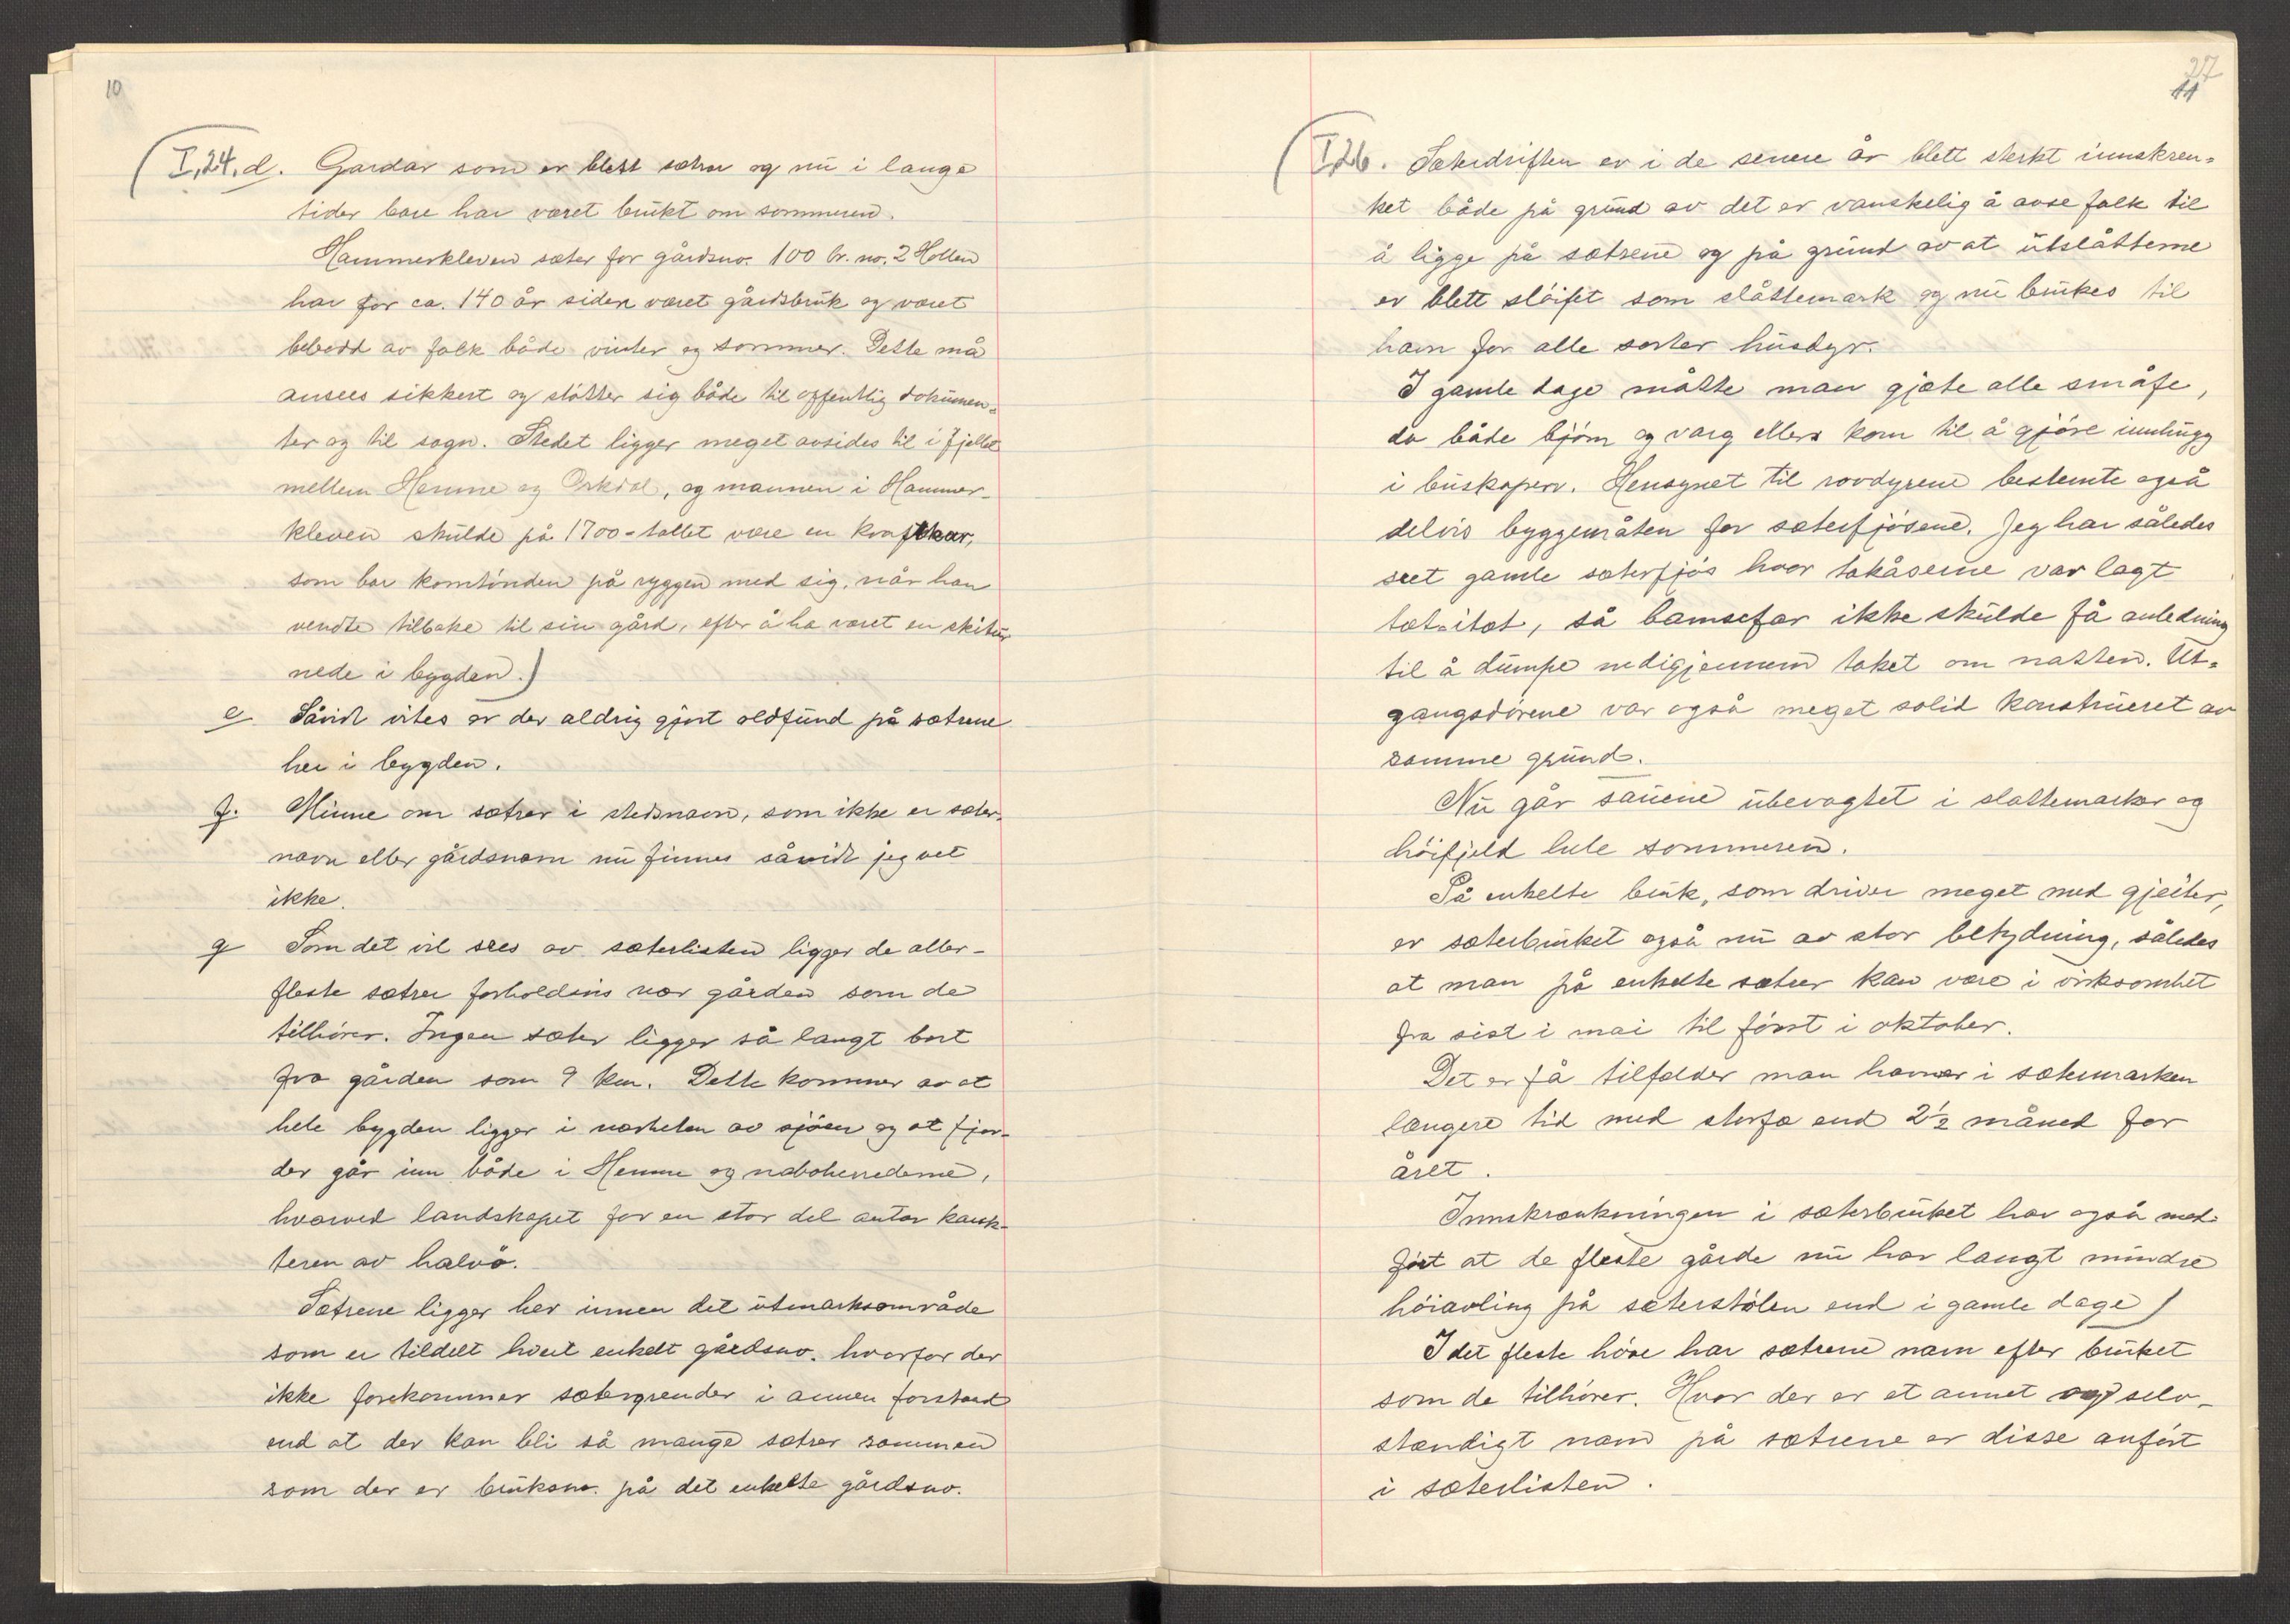 10
(I,24,d. Gardar som er blett sætrar og nu i lange
tider bare har været brukt om sommeren.
Hammerkleven sæter for gårdsno. 100 br. no. 2 Hollen
har for ca. 140 år siden været gårdsbruk og været
bebodd av folk både vinter og sommer. Dette må
ansees sikkert og støtter sig både til offentlig dokumen-
ter og til sagn. Stedet ligger meget avsides til i fjellet
mellem Hemne og Orkdal, og mannen i Hammer-
kleven skulde på 1700-tallet være en kraftkar,
som bar korntønden på ryggen med sig, når han
vendte tilbake til sin gård, efter å ha været en skitur
nede i bygden.)
e Såvidt vites er der aldrig gjort oldfund på sætrene
her i bygden.
f. Minne om sætrer i stedsnavn, som ikke er sæter-
navn eller gårdsnavn nu finnes såvidt jeg vet
ikke.
g Som det vil sees av sæterlisten ligger de aller-
fleste sætrer forholdsvis nær gården som de
tilhører. Ingen sæter ligger så langt bort
fra gården som 9 km. Dette kommer av at
hele bygden ligger i nærheten av sjøen og at fjor-
der går inn både i Hemne og naboherrederne,
hvorved landskapet for en stor del antar karak-
teren av halvø.
Sætrene ligger her innen det utmarksområde
som er tildelt hvert enkelt gårdsno. hvorfor der
ikke forekommer sætergrender i annen forstand
end at der kan bli så mange sætrer sammen
som der er bruksno. på det enkelte gårdsno.
27
11
(I26. Sæterdriften er i de senere år blett sterkt innskren-
ket både på grund av det er vanskelig å avse folk til
å ligge på sætrene og på grund av at utslåtterne
er blett sløifet som slåttemark og nu brukes til
havn for alle sorter husdyr.
I gamle dage måtte man gjæte alle småfe,
da både bjørn og varg ellers kom til å gjøre innhugg
i buskapen. Hensynet til rovdyrene bestemte også
delvis byggemåten for sæterfjøsene. Jeg har således
seet gamle sæterfjøs hvor takåserne var lagt
tæt-i-tæt, så bamsefar ikke skulde få anledning
til å dumpe nedigjennem taket om natten. Ut-
gangsdørene var også meget solid konstrueret av
samme grund.
Nu går sauene ubevogtet i slåttemarker og
høifjeld hele sommeren.
På enkelte bruk, som driver meget med gjeiter,
er sæterbruket også nu av stor betydning, således
at man på enkelte sætrer kan være i virksomhet
fra sist i mai til først i oktober.
Det er få tilfælder man havner i sætermarken
længere tid med storfæ end 2½ måned for
året.
Innskrænkningen i sæterbruket har også med-
ført at de fleste gårde nu har langt mindre
høiavling på sæterstølen end i gamle dage)
I det fleste høve har sætrene navn efter bruket
som de tilhører. Hvor der er et annet og selv-
stændigt navn på sætrene er disse anført
i sæterlisten.